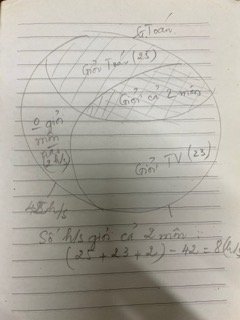 G Toán
Giỏi Toán (25)
Giỏi cả 2 môn
0 giỏi
môn
(2 h/s)
Giỏi TV (23)
42 h/s
Số h/s giỏi cả 2 môn :
(25 + 23 + 2) - 42 = 8 (h/s